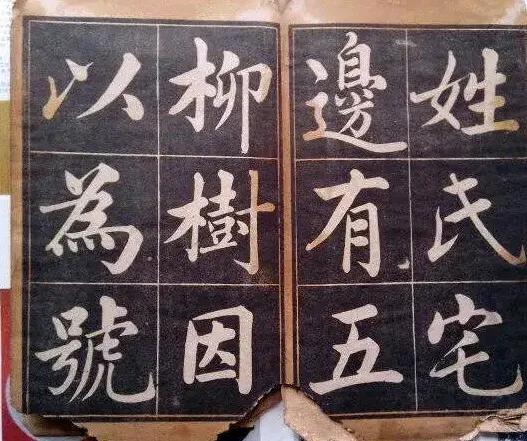 姓氏宅
邊有五
柳樹因
以為號